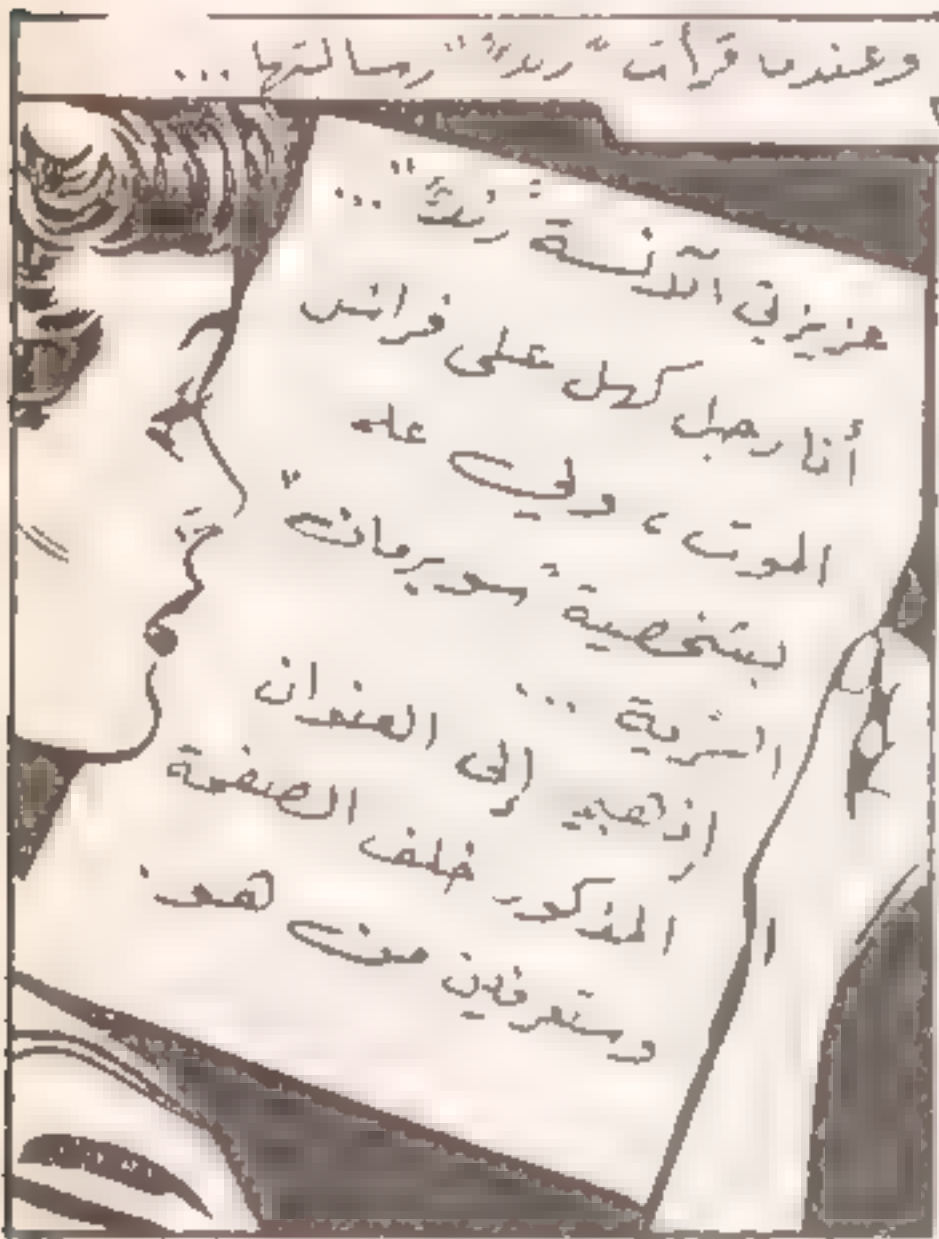 وعندما قرأت "رندة" رسالتها ...
عزيزتي الآنسة "رندة" ...
أنا رجل كهل على فراش
الموت ، ولي علم
بشخصية "سوبرمان"
السرية ...
إذهبي إلى العنوان
المذكور خلف الصفحة
وستعرفين من هو.